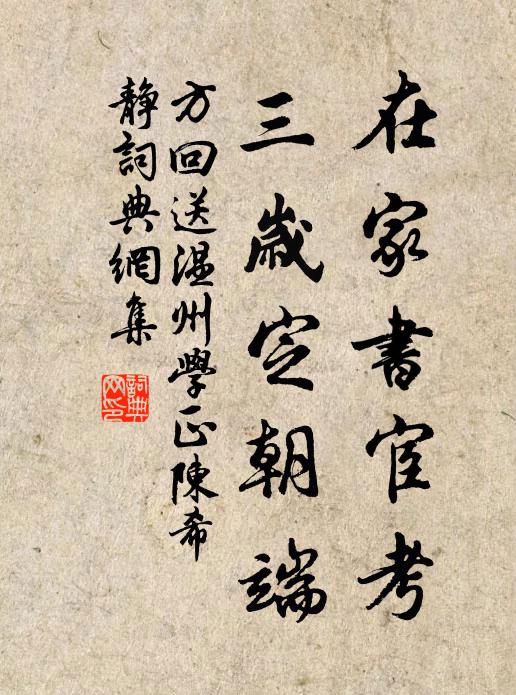 在家書宦考
三歲定朝端
方回送温州學正陳希
靜詞典網集
詞典
网印